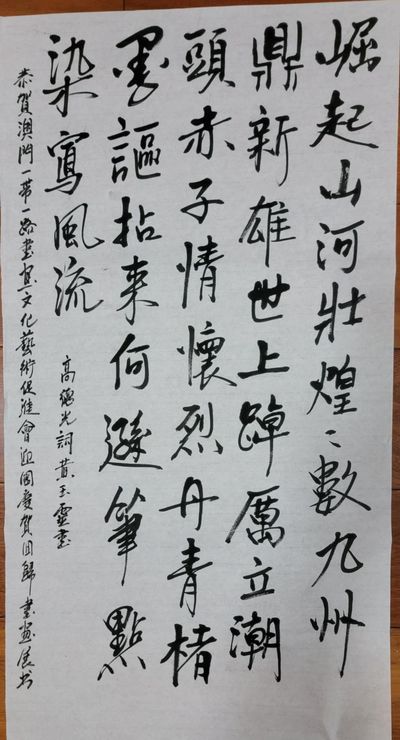 崛起山河壯煌〻數九州
鼎新雄世上踔厲立潮
頭赤子情懷烈丹青楮
墨謳拈来何遜筆點
染寫風流
高德光詞黃玉靈書
恭賀澳門一带一路書画文化藝術促進會迎國慶賀回歸 書画展书